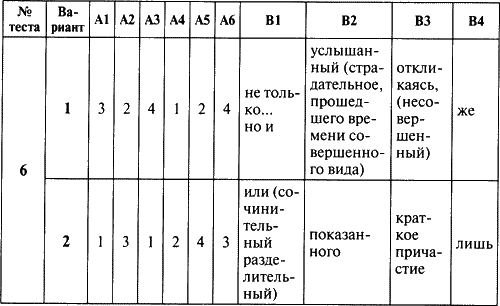 № теста | Ва-риант | А1 | А2 | А3 | А4 | А5 | А6 | В1 | В2 | В3 | В4
6
1 | 3 | 2 | 4 | 1 | 2 | 4
не толь-
ко...
но и
услышан-
ный (стра-
дательное,
прошед-
шего вре-
мени со-
вершенно-
го вида)
откли-
каясь,
(несо-
вер-
шен-
ный)
же
2 | 1 | 3 | 1 | 2 | 4 | 3
или (со-
чини-
тель-
ный
разде-
литель-
ный)
показан-
ного
крат-
кое
прича-
стие
лишь